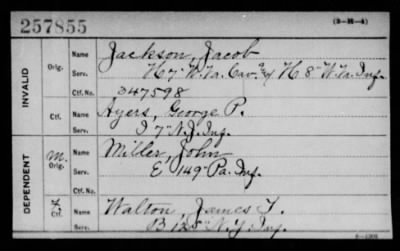 257855
(3-M-4)
INVALID
Orig.
Name Jackson, Jacob
Serv. H 7" W. Va. Cav. & H 8" W. Va. Inf.
Ctf. No. 347598
Ctf.
Name Ayers, George P.
Serv. I 7" N.J. Inf.
DEPENDENT
M.
Orig.
Name Miller, John
Serv. E 149" Pa. Inf.
Ctf. No.
Ctf.
Name Walton, James T.
Serv. B 125" N.Y. Inf.